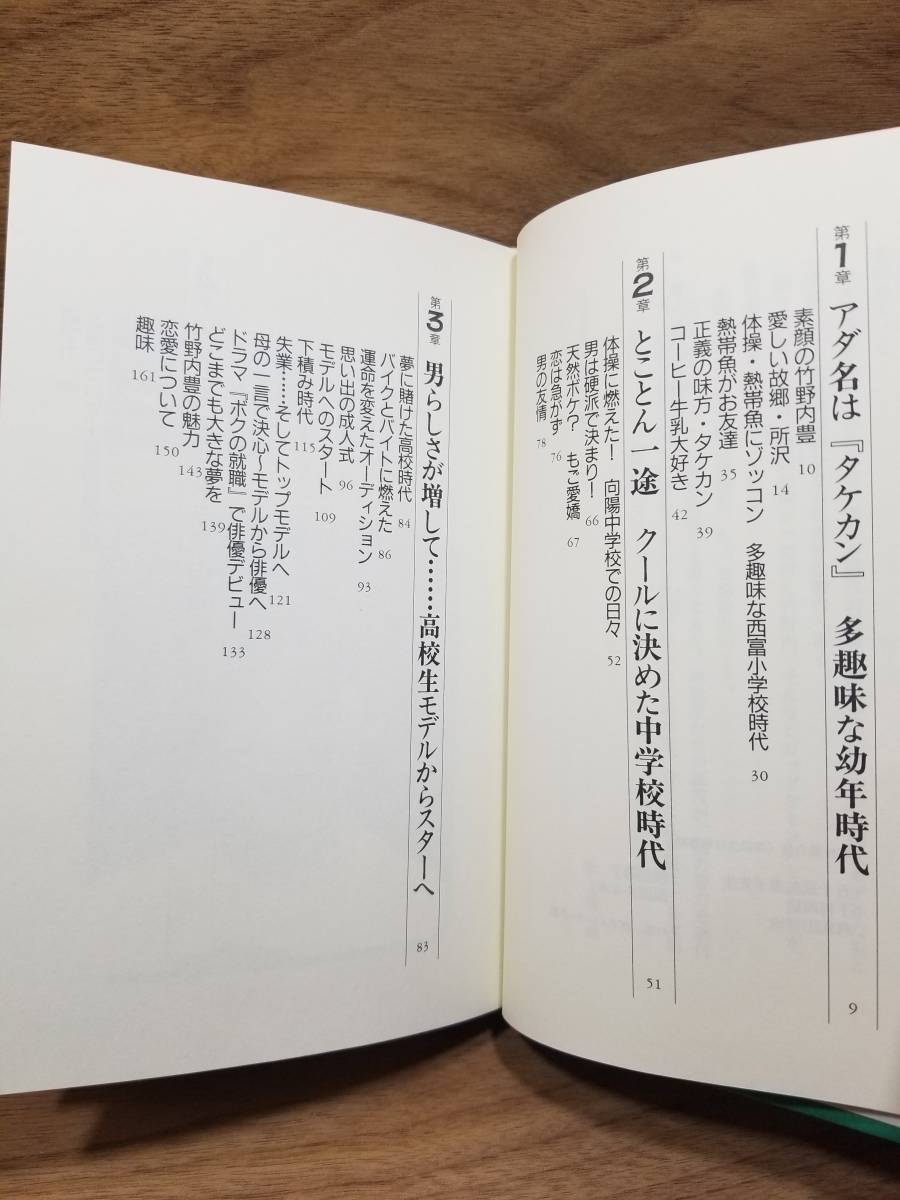 第1章 アダ名は『タケカン』 多趣味な幼年時代 9
素顔の竹野内豊 10
愛しい故郷・所沢 14
体操・熱帯魚にゾッコン 多趣味な西富小学校時代 30
熱帯魚がお友達 35
正義の味方・タケカン 39
コーヒー牛乳大好き 42
第2章 とことん一途 クールに決めた中学校時代 51
体操に燃えた! 向陽中学校での日々 52
男は硬派で決まり! 66
天然ボケ? もご愛嬌 67
恋は急がず 76
男の友情 78
第3章 男らしさが増して……高校生モデルからスターへ 83
夢に賭けた高校時代 84
バイクとバイトに燃えた 86
運命を変えたオーディション 93
思い出の成人式 96
モデルへのスタート 109
下積み時代 115
失業……そしてトップモデルへ 121
母の一言で決心〜モデルから俳優へ 128
ドラマ『ボクの就職』で俳優デビュー 133
どこまでも大きな夢を 139
竹野内豊の魅力 143
恋愛について 150
趣味 161